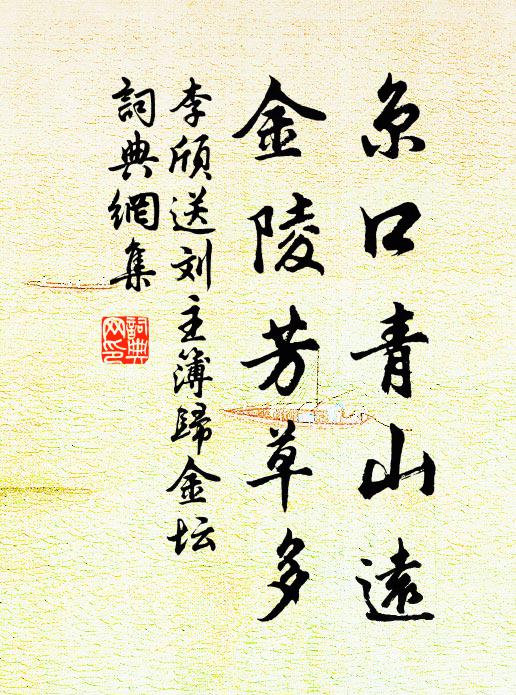 京口青山遠
金陵芳草多
李頎送刘主簿歸金坛
詞典網集
詞典網印